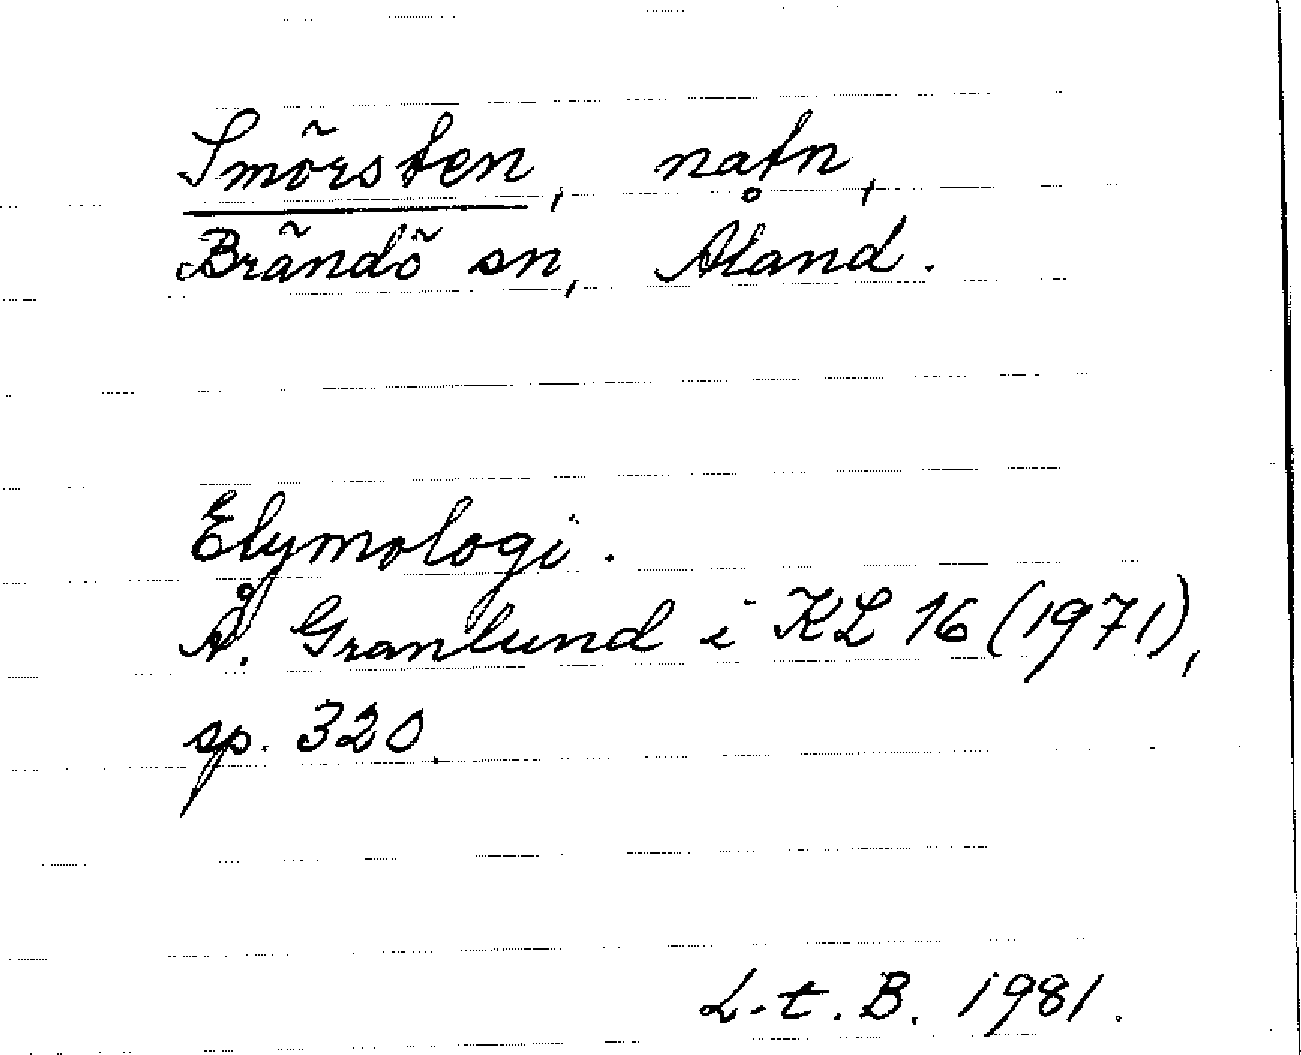 Smörsten, natn,
Brändö sn, Åland.
Etymologi.
Å. Granlund i KL 16 (1971),
sp. 320.
L.t.B. 1981.